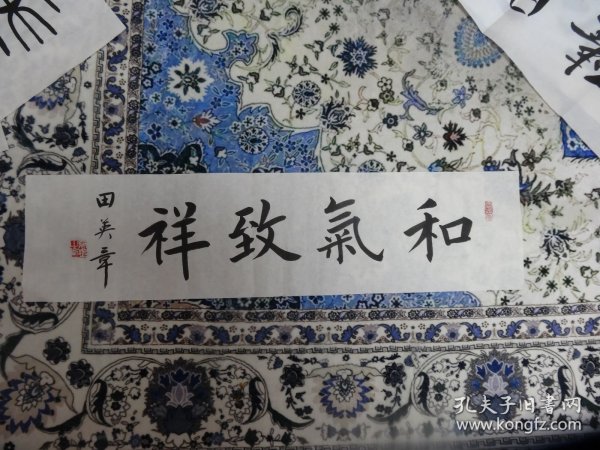 和氣致祥
田英章
孔夫子旧书网
www.kongfz.com